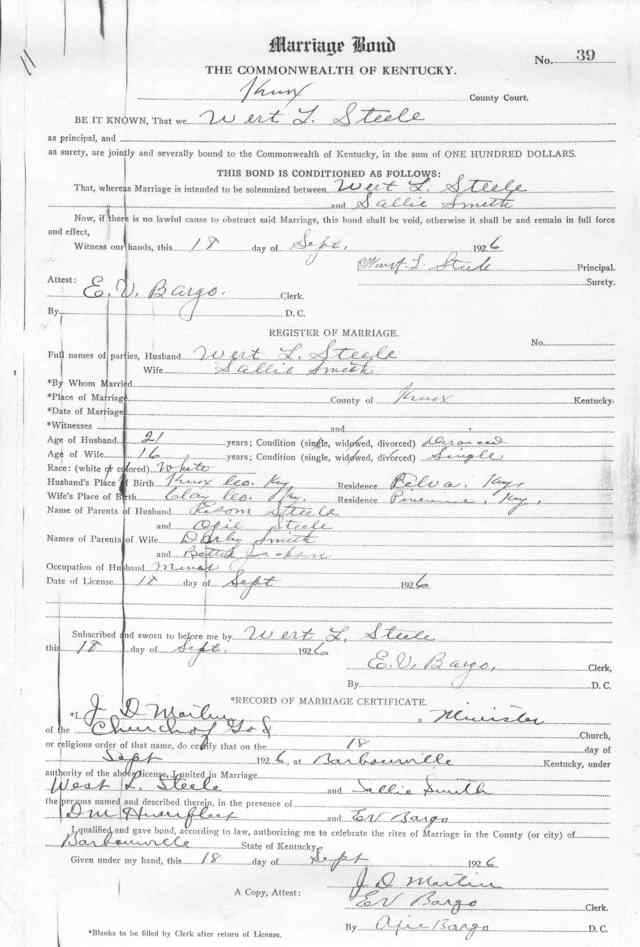 Marriage Bond
No. 39
THE COMMONWEALTH OF KENTUCKY.
Knox County Court.
BE IT KNOWN, That we Wert L. Steele
as principal, and
as surety, are jointly and severally bound to the Commonwealth of Kentucky, in the sum of ONE HUNDRED DOLLARS.
THIS BOND IS CONDITIONED AS FOLLOWS:
That, whereas Marriage is intended to be solemnized between Wert L. Steele
and Sallie Smith
Now, if there is no lawful cause to obstruct said Marriage, this bond shall be void, otherwise it shall be and remain in full force
and effect,
Witness our hands, this 18 day of Sept. 1926
L Steele Principal.
Surety.
Attest: E. V. Bargo. Clerk.
By D. C.
REGISTER OF MARRIAGE.
No.
Full names of parties, Husband Wert L. Steele
Wife Sallie Smith
*By Whom Married
*Place of Marriage County of Knox Kentucky.
*Date of Marriage
*Witnesses and
Age of Husband 21 years; Condition (single, widowed, divorced) Divorced
Age of Wife 16 years; Condition (single, widowed, divorced) Single
Race: (white or colored). White
Husband's Place of Birth Knox Co. Ky Residence Belva. Ky.
Wife's Place of Birth Clay Co. Ky. Residence Ky.
Name of Parents of Husband Steele
and Steele
Names of Parents of Wife Darby Smith
and
Occupation of Husband Miner
Date of License 18 day of Sept 1926
Subscribed and sworn to before me by Wert L. Steele
this 18 day of Sept. 1926
E. V. Bargo, Clerk,
By D. C.
*RECORD OF MARRIAGE CERTIFICATE.
*I, J D Martin, Minister
of the Church of God Church,
or religious order of that name, do certify that on the 18 day of
Sept 1926 at Barbourville Kentucky, under
authority of the above license, I united in Marriage
West L. Steele and Sallie Smith
the persons named and described therein, in the presence of
DM Hunfleet and EV Bargo
I qualified and gave bond, according to law, authorizing me to celebrate the rites of Marriage in the County (or city) of
Barbourville State of Kentucky.
Given under my hand, this 18 day of Sept 1926
J. D Martin
A Copy, Attest: EV Bargo Clerk.
By Bargo D. C.
*Blanks to be filled by Clerk after return of License.